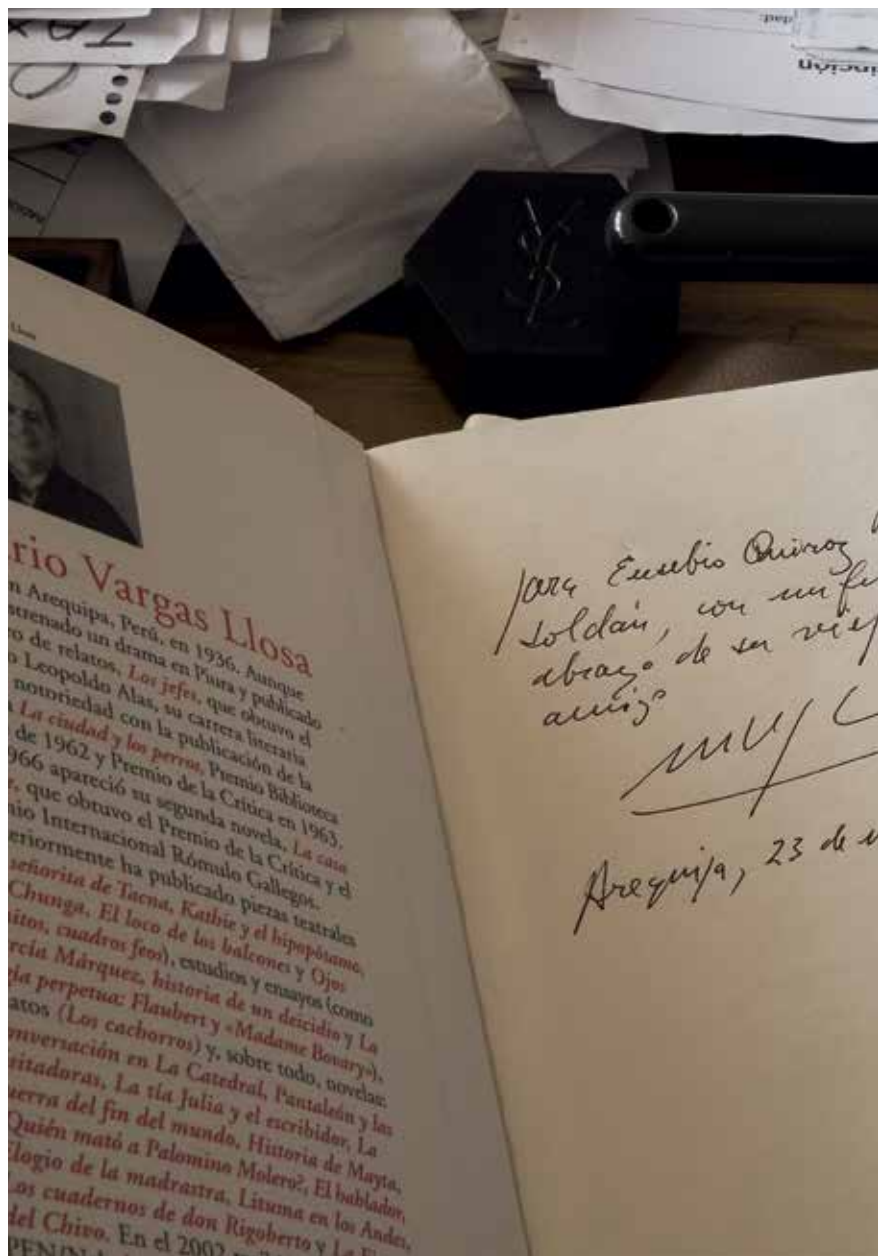 TAX
dad:
inción
Llosa
rio Vargas Llosa
n Arequipa, Perú, en 1936. Aunque
strenado un drama en Piura y publicado
ro de relatos, Los jefes, que obtuvo el
o Leopoldo Alas, su carrera literaria
notoriedad con la publicación de la
a La ciudad y los perros, Premio Biblioteca
de 1962 y Premio de la Crítica en 1963.
966 apareció su segunda novela, La casa
e, que obtuvo el Premio de la Crítica y el
nio Internacional Rómulo Gallegos.
eriormente ha publicado piezas teatrales
señorita de Tacna, Kathie y el hipopótamo,
Chunga, El loco de los balcones y Ojos
nitos, cuadros feos), estudios y ensayos (como
rcía Márquez, historia de un deicidio y La
gía perpetua: Flaubert y «Madame Bovary»),
atos (Los cachorros) y, sobre todo, novelas:
onversación en La Catedral, Pantaleón y las
sitadoras, La tía Julia y el escribidor, La
uerra del fin del mundo, Historia de Mayta,
Quién mató a Palomino Molero?, El hablador,
Elogio de la madrastra, Lituma en los Andes,
Los cuadernos de don Rigoberto y La
del Chivo. En el 2002
PEN/N
YSL
para Eusebio Quiroz
Soldán, con un fu
abrazo de su viej
amigo
Arequipa, 23 de